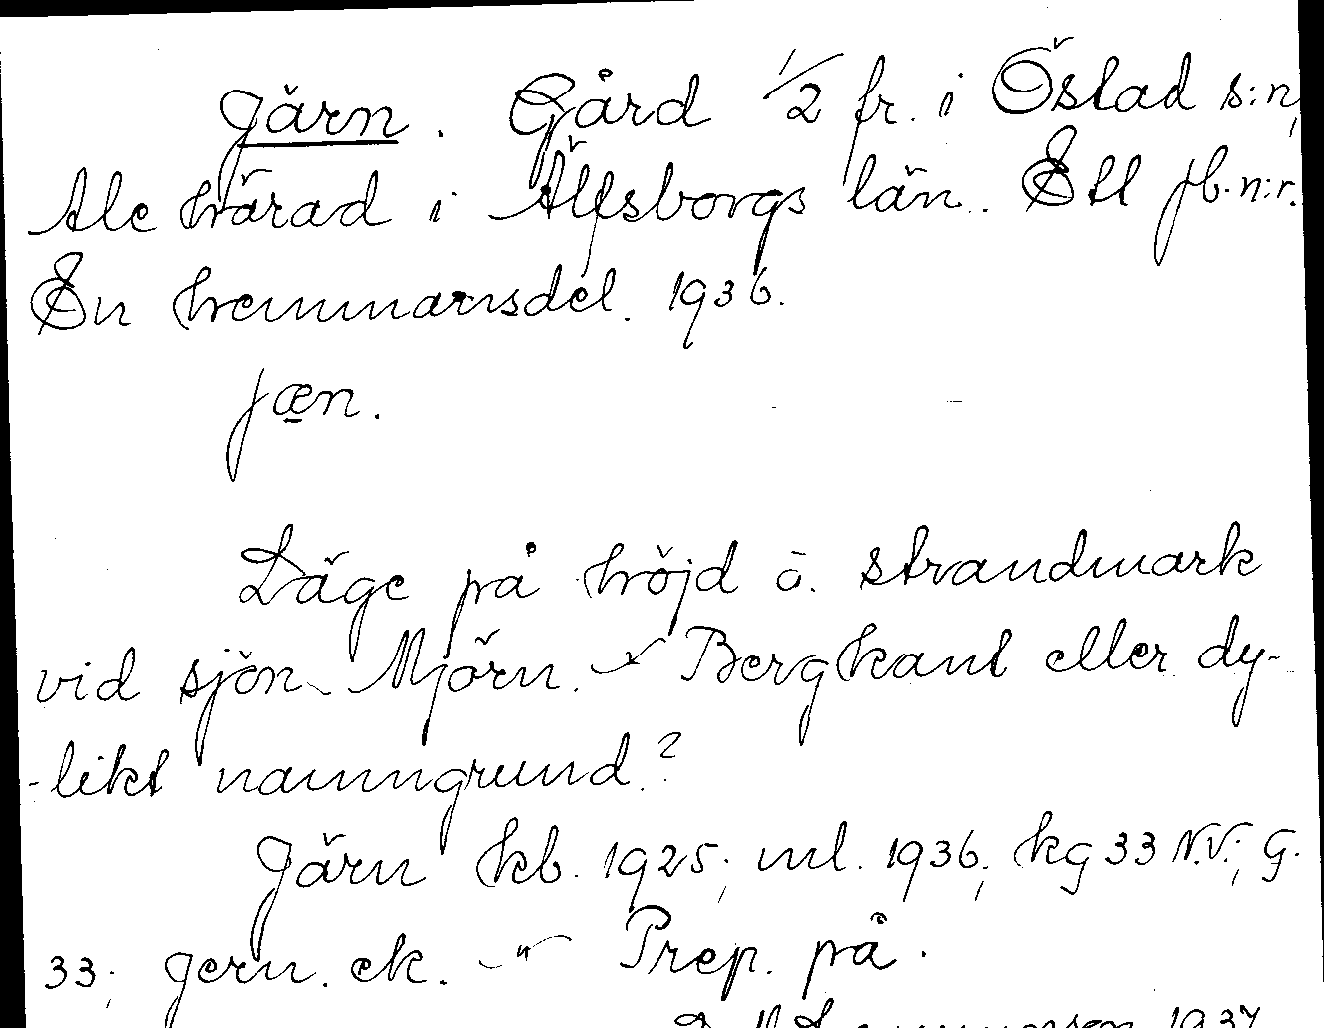 Järn. Gård 1/2 fr. i Östad s:n,
Ale härad i Älfsborgs län. Ett jb.n:r.
En hemmansdel. 1936.
jæn.
Läge på höjd o. strandmark
vid sjön Mjörn. - Bergkant eller dy-
-likt namngrund?
Järn kb. 1925; ml. 1936; kg 33 N.V.; G.
33; gern. ek. - " - Prep. på.
1937